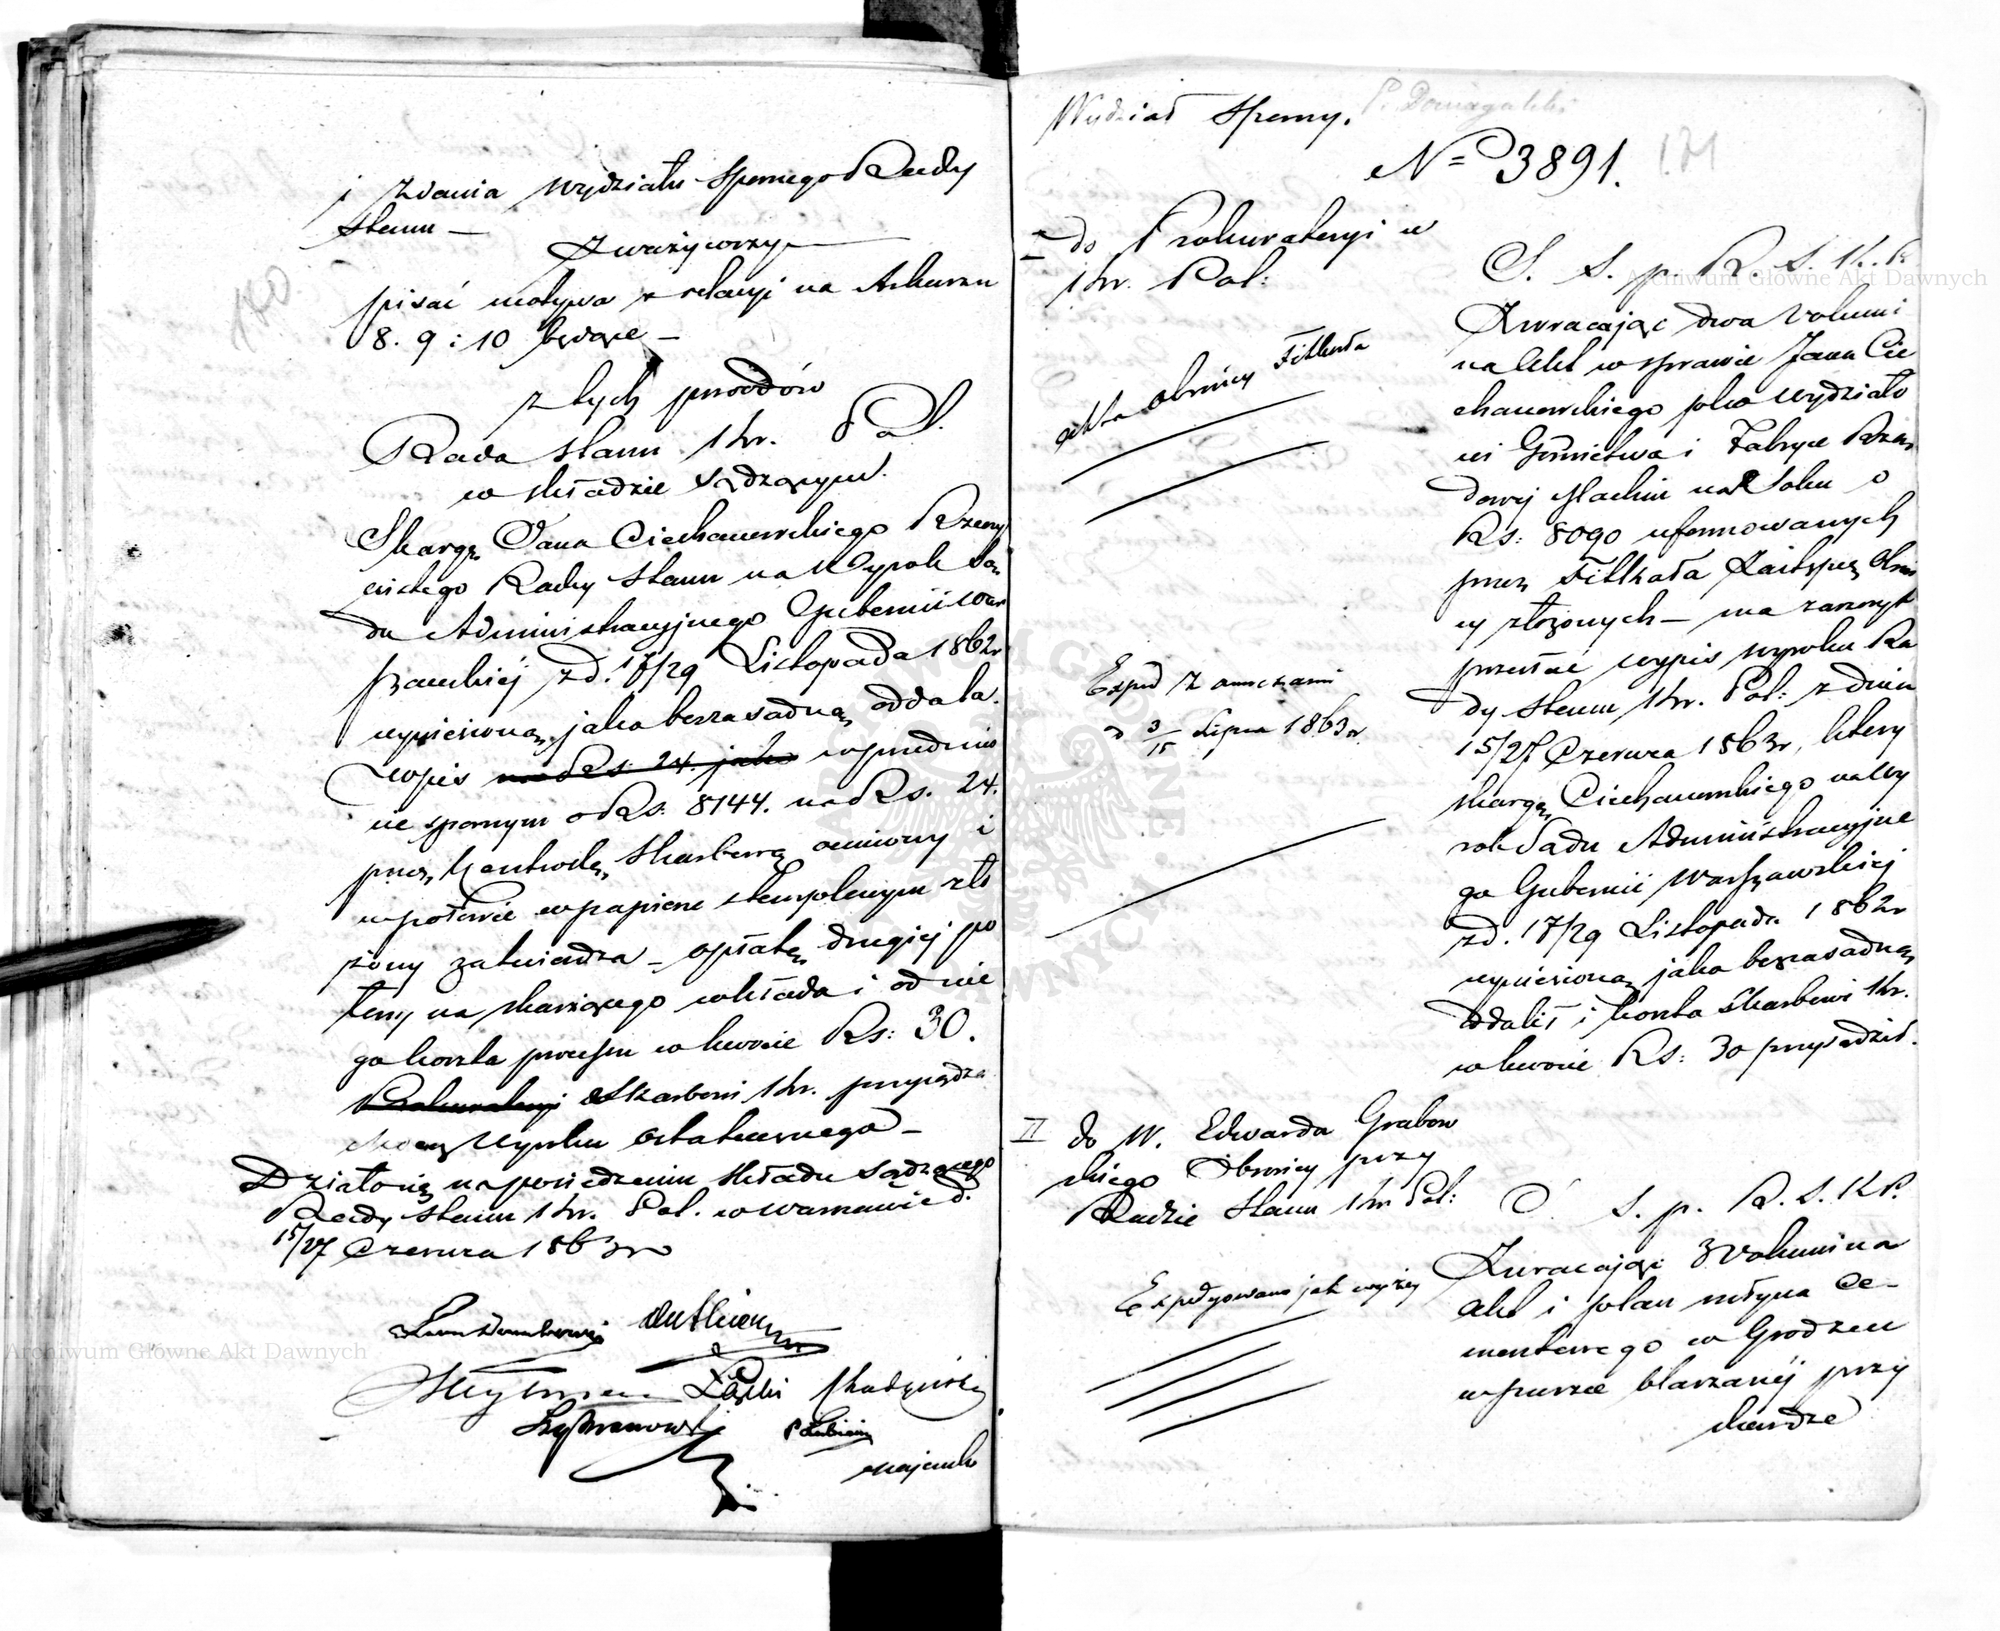 170
i zdania wydziału Spornego Rady
Stanu —
Zważywszy —
pisać motywa z relacyi na Arkuszu
8. 9 i 10 będące —
z tych powodów
Rada Stanu Kr. Pol.
w składzie sądzącym.
Skargę Jana Ciechanowskiego Rzeczy
wistego Radcy Stanu na Wyrok Są
du Administracyjnego Gubernii War
szawskiej z d. 17/29 Listopada 1862 r
wyniesioną, jako bezzasadną oddala.
Wpis na Rs. 24. jako w przedmio
cie spornym o Rs. 8144. na Rs. 24.
przez Kontrolę Skarbową oceniony i
w połowie w papierze stemplowym zło
żony zatwierdza — opłatę drugiej po
łowy na skarżącego wkłada i od nie
go koszta procesu w kwocie Rs: 30.
Prokuratoryi Skarbowi Kr. przysądza
Mocą Wyroku Ostatecznego —
Działo się na posiedzeniu składu Sądzącego
Rady Stanu Kr. Pol. w Warszawie d.
15/27 Czerwca 1863 r
Łąski
Szymanowski
P Łubieński
Wydział Sporny. P. Domagalski
No 3891. 171
I do Prokuratoryi w
Kr. Pol:
akta obrońcy Filkała
Exped z annexami
d 3/15 Lipca 1863 r.
S. S. p. R. S. K. P.
Zwracając dwa Volumi
na Akt w sprawie Jana Cie
chanowskiego p-ko Wydziało
wi Górnictwa i Fabryce Rzą
dowej Machin na Solcu o
Rs: 8090 uformowanych
przez Filkała Zastępcę Obroń
cy złożonych — ma zaszczyt
przesłać wypis wyroku Ra
dy Stanu Kr. Pol: z dnia
15/27 Czerwca 1863 r, który
skargę Ciechanowskiego na Wy
rok Sądu Administracyjne
go Gubernii Warszawskiej
z d. 17/29 Listopada 1862 r
wyniesioną jako bezzasadną
oddalił i koszta Skarbowi Kr.
w kwocie Rs: 30 przysądził.
II do W. Edwarda Grabow
skiego Obrońcy przy
Radzie Stanu Kr Pol:
Expedyowano jak wyżej
S. p. R. S. K P.
Zwracając 3 Volumina
akt i plan młyna Ce-
mentowego w Grodzcu
w puszce blaszanej przy
skardze
Archiwum Główne Akt Dawnych
Archiwum Główne Akt Dawnych